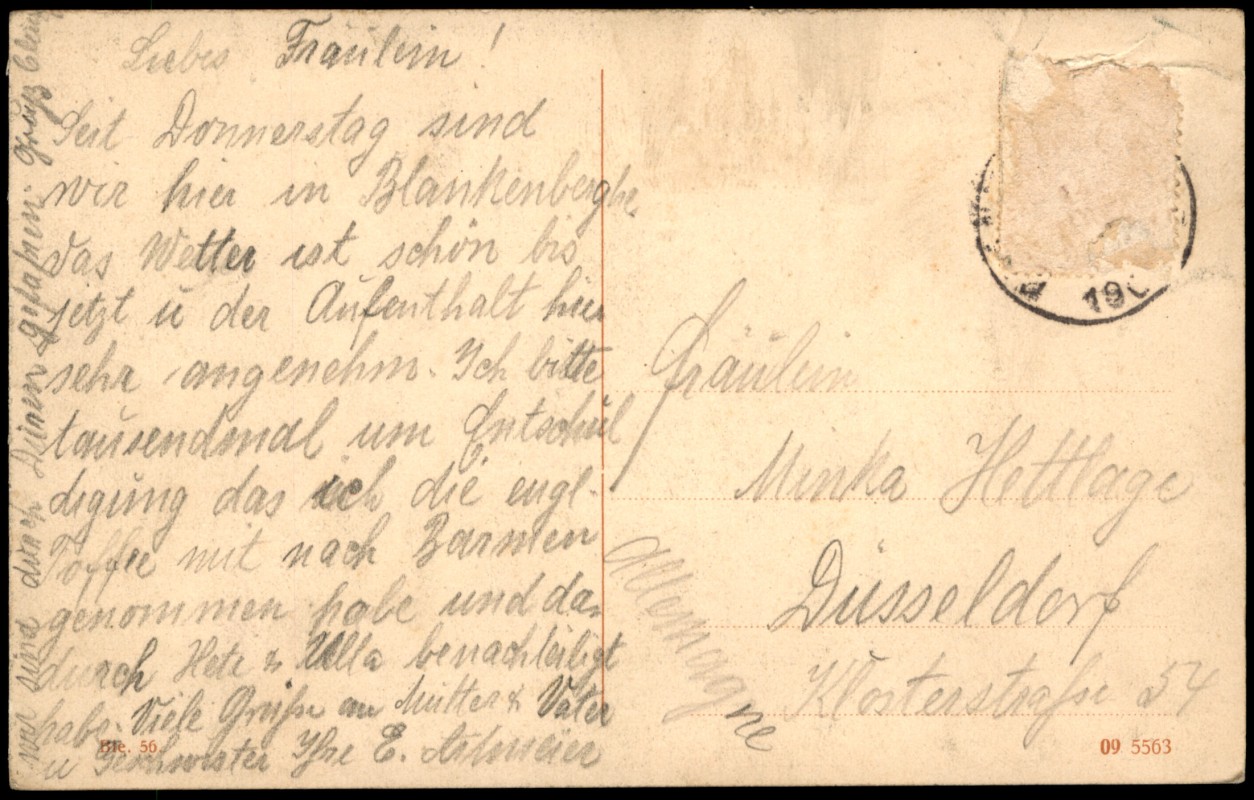 Liebes Fräulein!
Seit Donnerstag sind
wir hier in Blankenberghe
das Wetter ist schön bis
jetzt u der Aufenthalt hier
sehr angenehm. Ich bitte
tausendmal um Entschul
digung das ich die engl.
Toffee mit nach Barmen
genommen habe und da
durch Hete & Ulla benachteiligt
habe. Viele Grüße an Mutter & Vater
u Geschwister Ihre E.
wir sind durch gefahren. Gruß
Fräulein
Minka Hettlage
Düsseldorf
Klosterstraße 54
Allemagne
190
Ble. 56.
09 5563